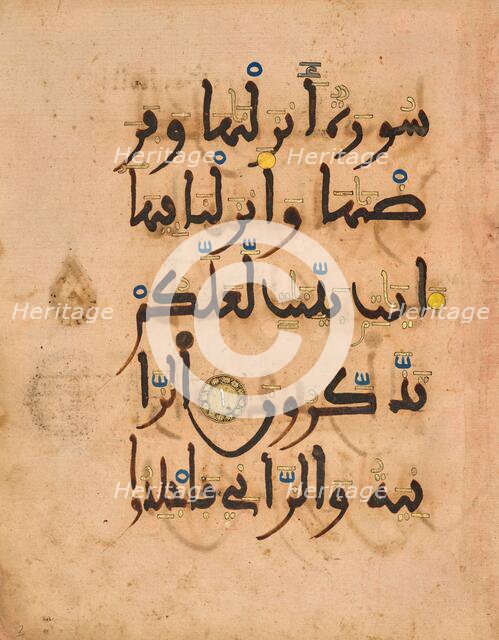 سورة أنزلنها وفر
Heritage Heritage Heritage
ضنها وأنزلنا فيها
ايت بينت لعلكم
Heritage © Heritage
تذكرون الزا
Heritage Heritage Heritage
نية والزاني فاجلدوا